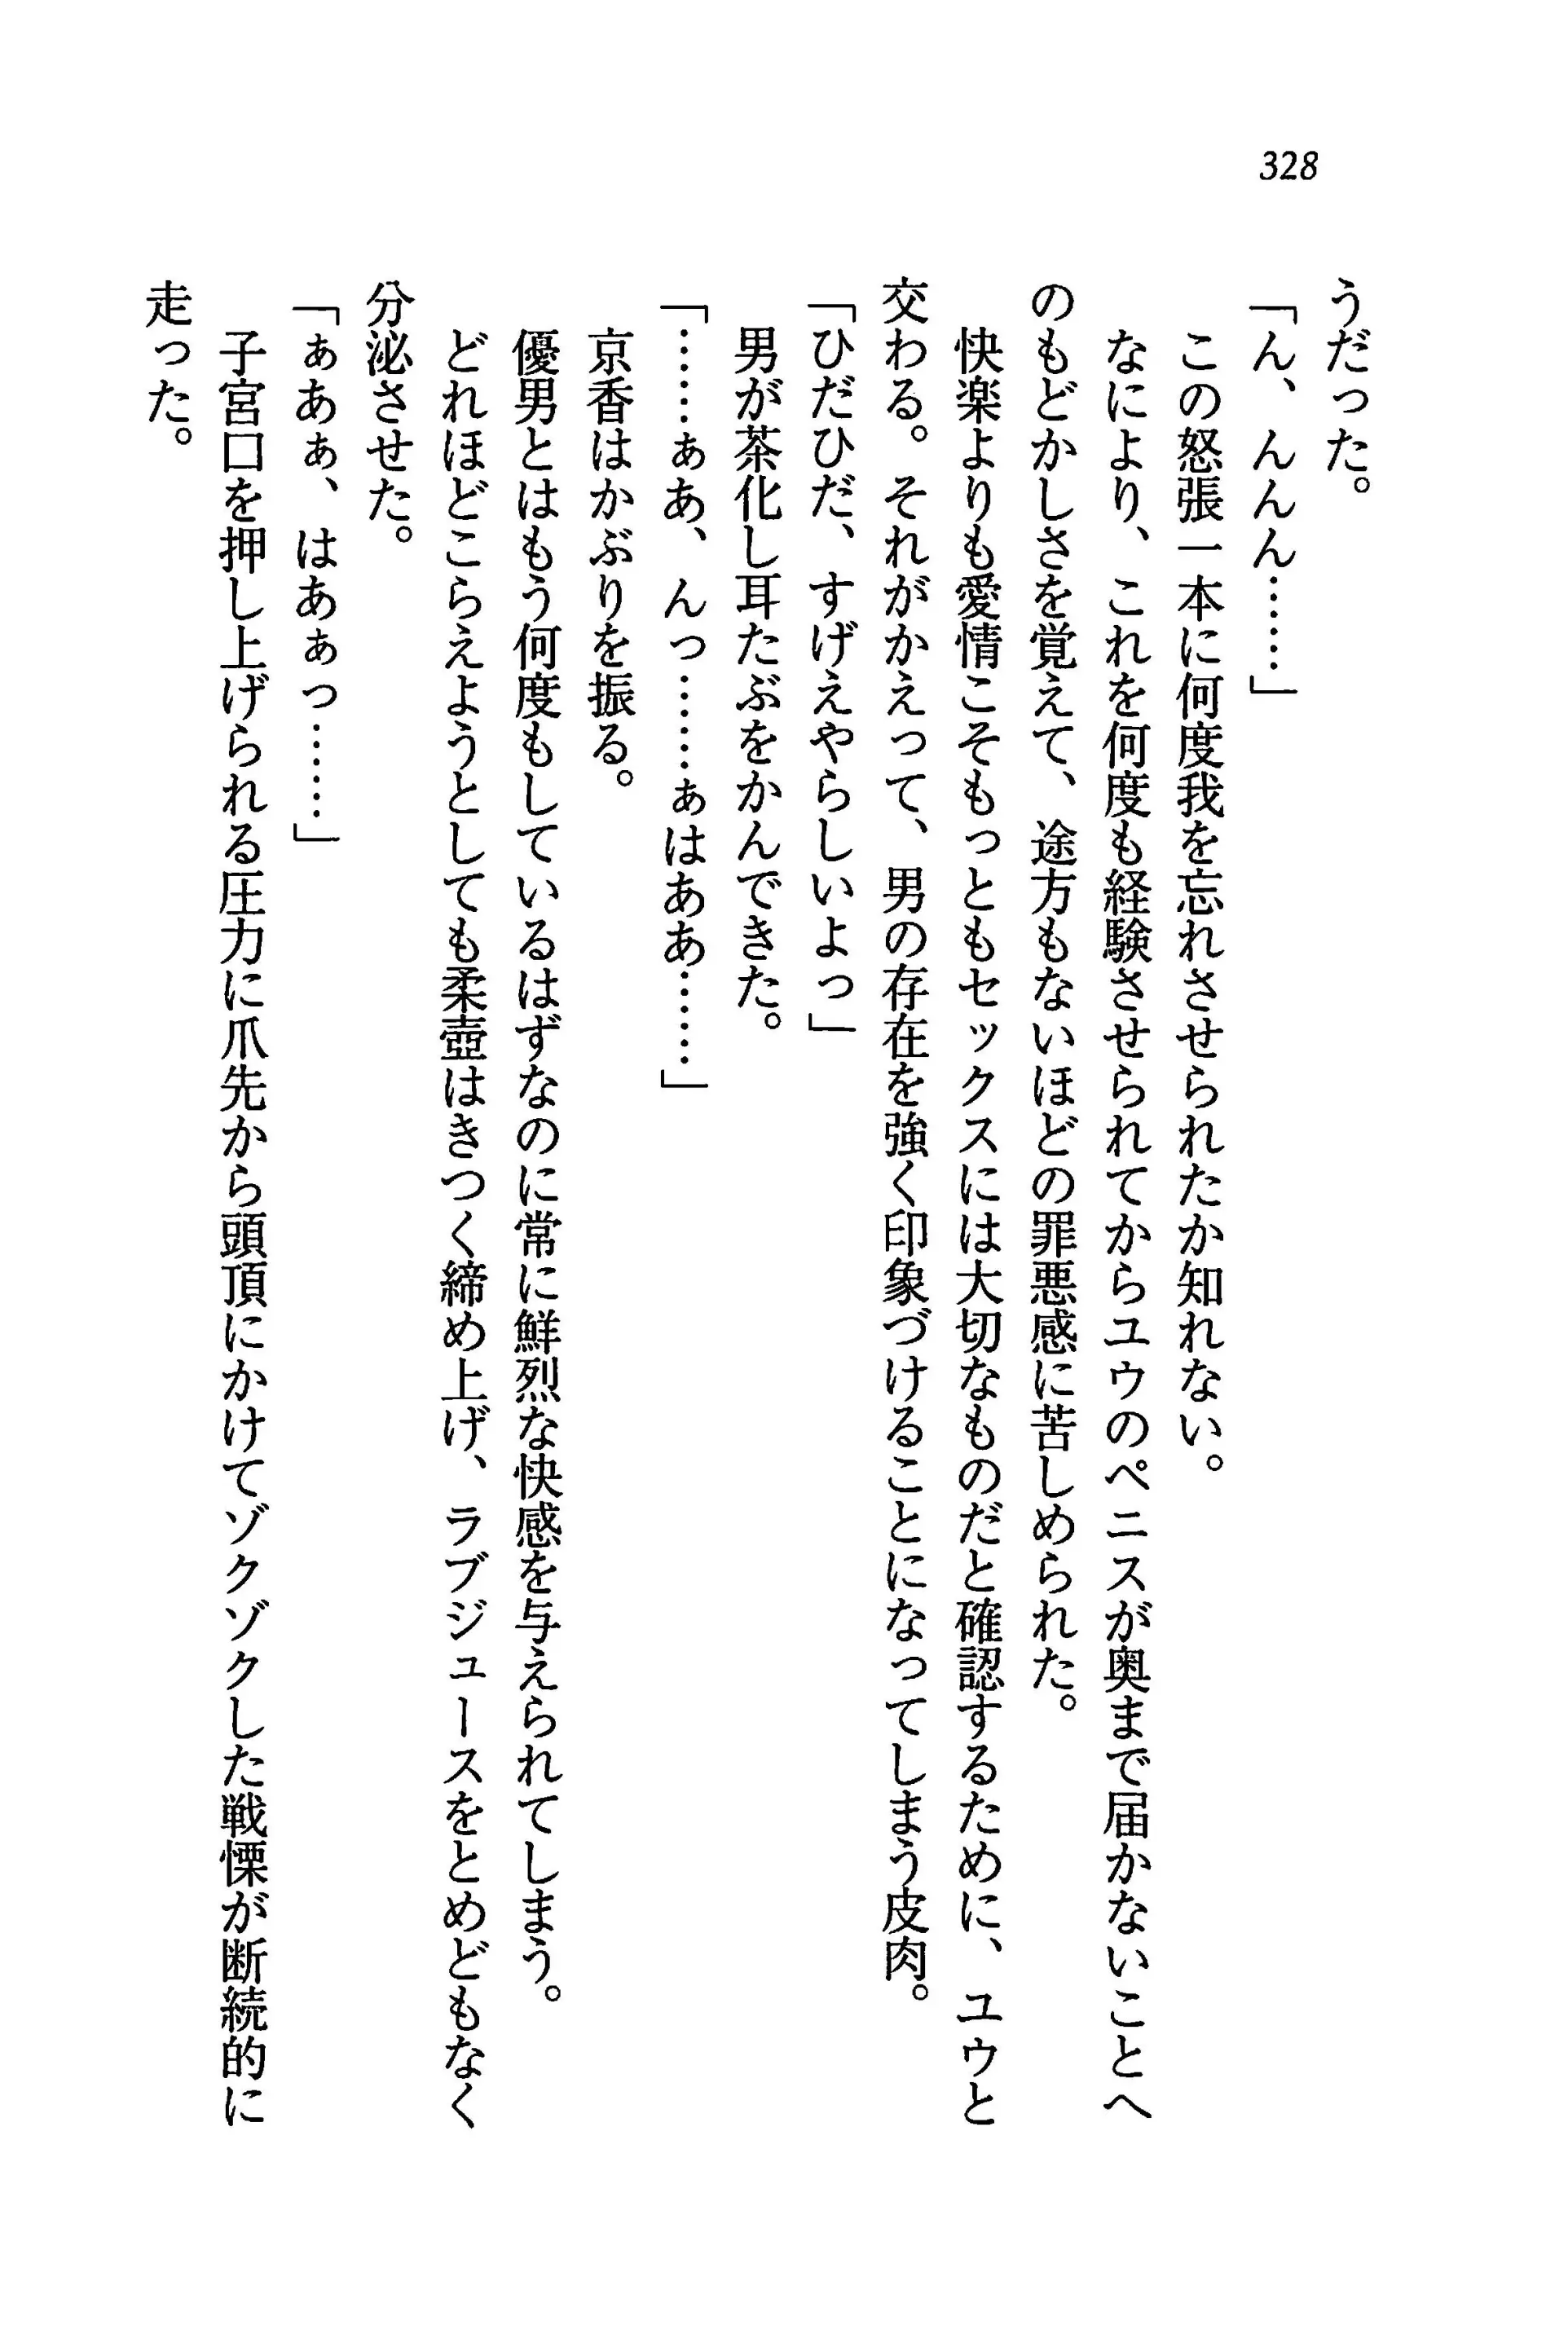 328
うだった。
「ん、んんん……」
この怒張一本に何度我を忘れさせられたか知れない。
なにより、これを何度も経験させられてからユウのペニスが奥まで届かないことへ
のもどかしさを覚えて、途方もないほどの罪悪感に苦しめられた。
快楽よりも愛情こそもっともセックスには大切なものだと確認するために、ユウと
交わる。それがかえって、男の存在を強く印象づけることになってしまう皮肉。
「ひだひだ、すげえやらしいよっ」
男が茶化し耳たぶをかんできた。
「……ぁあ、んっ………ぁはああ……」
京香はかぶりを振る。
優男とはもう何度もしているはずなのに常に鮮烈な快感を与えられてしまう。
どれほどこらえようとしても柔壺はきつく締め上げ、ラブジュースをとめどもなく
分泌させた。
「ぁあぁ、はあぁっ……」
子宮口を押し上げられる圧力に爪先から頭頂にかけてゾクゾクした戦慄が断続的に
走った。